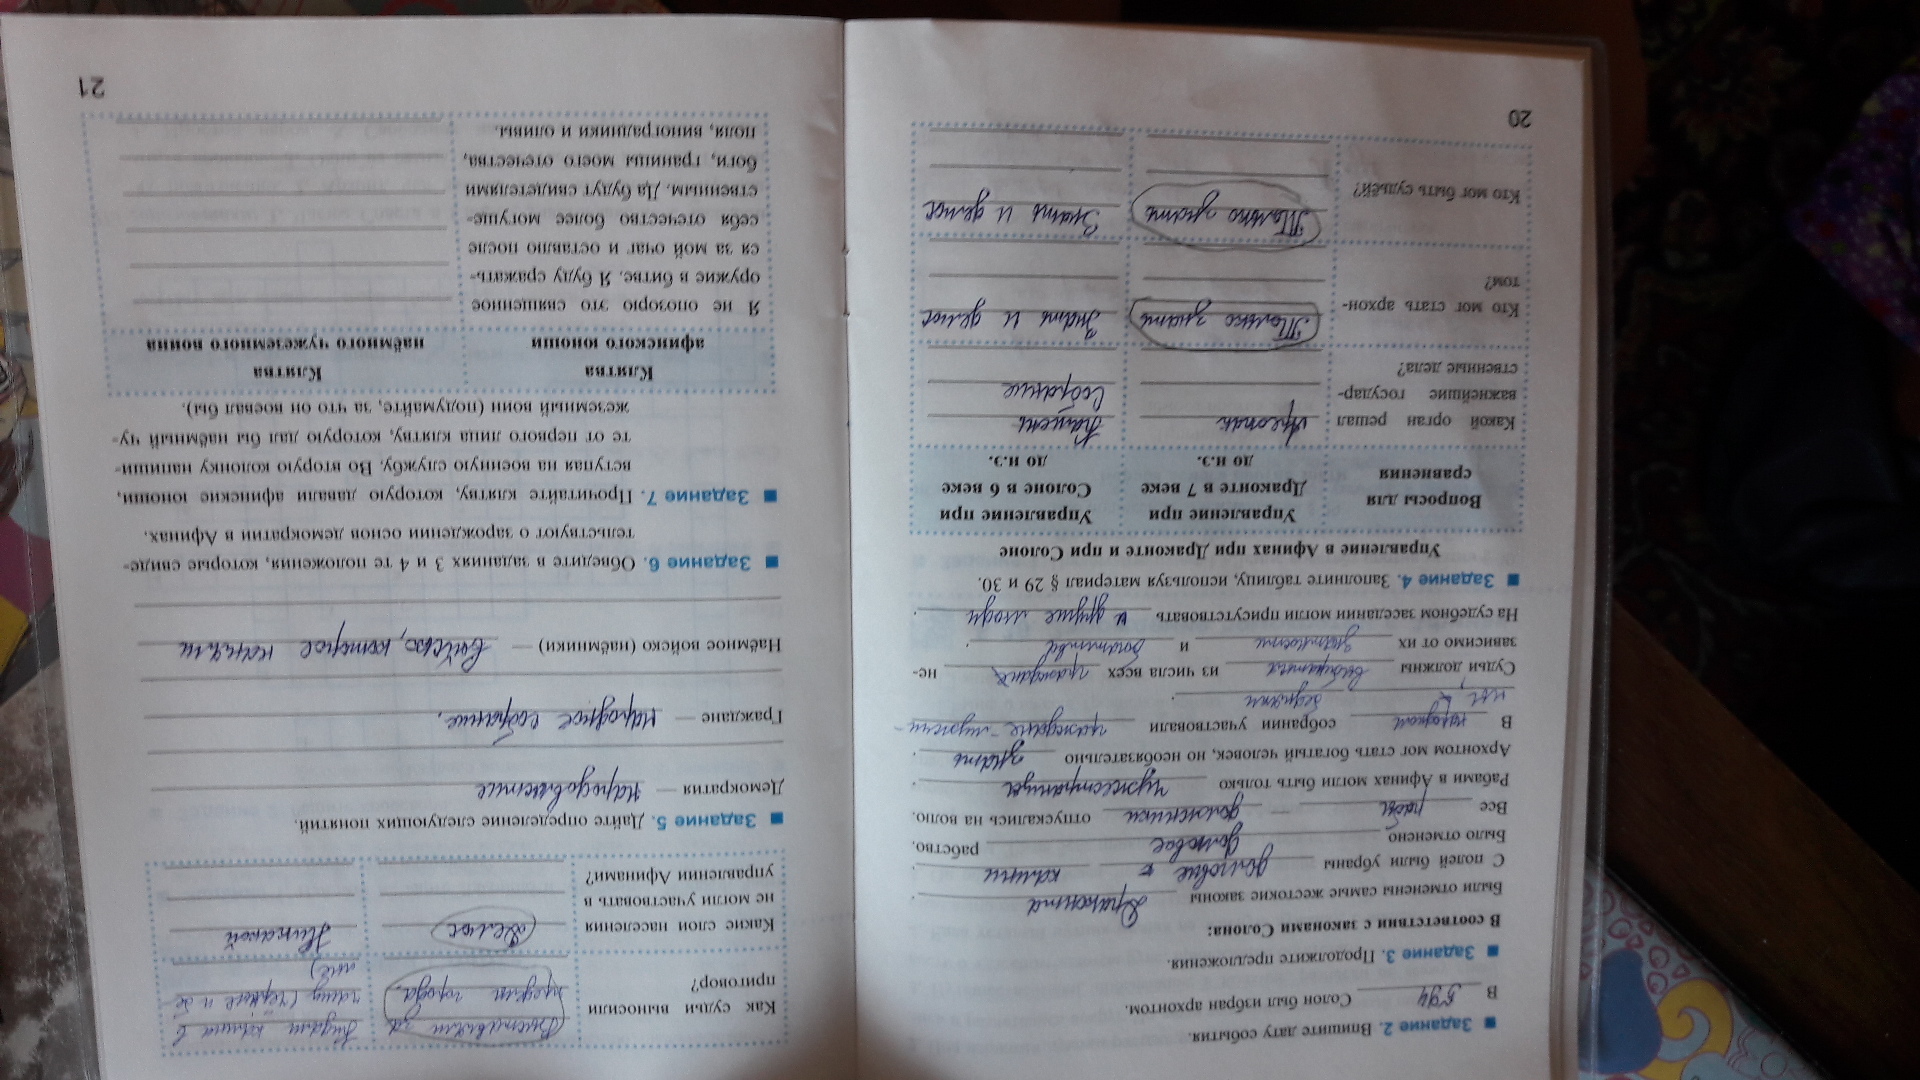 ■ Задание 2. Впишите дату события.
В 594 Солон был избран архонтом.
■ Задание 3. Продолжите предложения.
В соответствии с законами Солона:
Были отменены самые жестокие законы Драконта.
С полей были убраны долговые камни
Было отменено долговое рабство.
Все рабы — должники отпускались на волю.
Рабами в Афинах могли быть только чужестранцы.
Архонтом мог стать богатый человек, но необязательно знать.
В народном собрании участвовали граждане
бедняки.
Судьи должны из числа всех граждан не-
зависимо от их знатности и
На судебном заседании могли присутствовать и другие люди.
■ Задание 4. Заполните таблицу, используя материал § 29 и 30.
Управление в Афинах при Драконте и при Солоне
Вопросы для сравнения
Управление при Драконте в 7 веке до н.э.
Управление при Солоне в 6 веке до н.э.
Какой орган решал важнейшие государ-
ственные дела?
собрание
Кто мог стать архон-
том?
Только знать
Знать и демос
Кто мог быть судьёй?
Только знать
Знать и демос
20
Как судьи выносили
приговор?
Какие слои населения
не могли участвовать в
управлении Афинами?
Демос
Никакой
■ Задание 5. Дайте определение следующих понятий.
Демократия — народовластие
Граждане — народное собрание.
Наёмное войско (наёмники) — войско, которое наняли
■ Задание 6. Обведите в заданиях 3 и 4 те положения, которые свиде-
тельствуют о зарождении основ демократии в Афинах.
■ Задание 7. Прочитайте клятву, которую давали афинские юноши,
вступая на военную службу. Во вторую колонку напиши-
те от первого лица клятву, которую дал бы наёмный чу-
жеземный воин (подумайте, за что он воевал бы).
Клятва афинского юноши
Клятва наёмного чужеземного воина
Я не опозорю это священное
оружие в битве. Я буду сражать-
ся за мой очаг и оставлю после
себя отечество более могуще-
ственным. Да будут свидетелями
боги, границы моего отечества,
поля, виноградники и оливы.
21